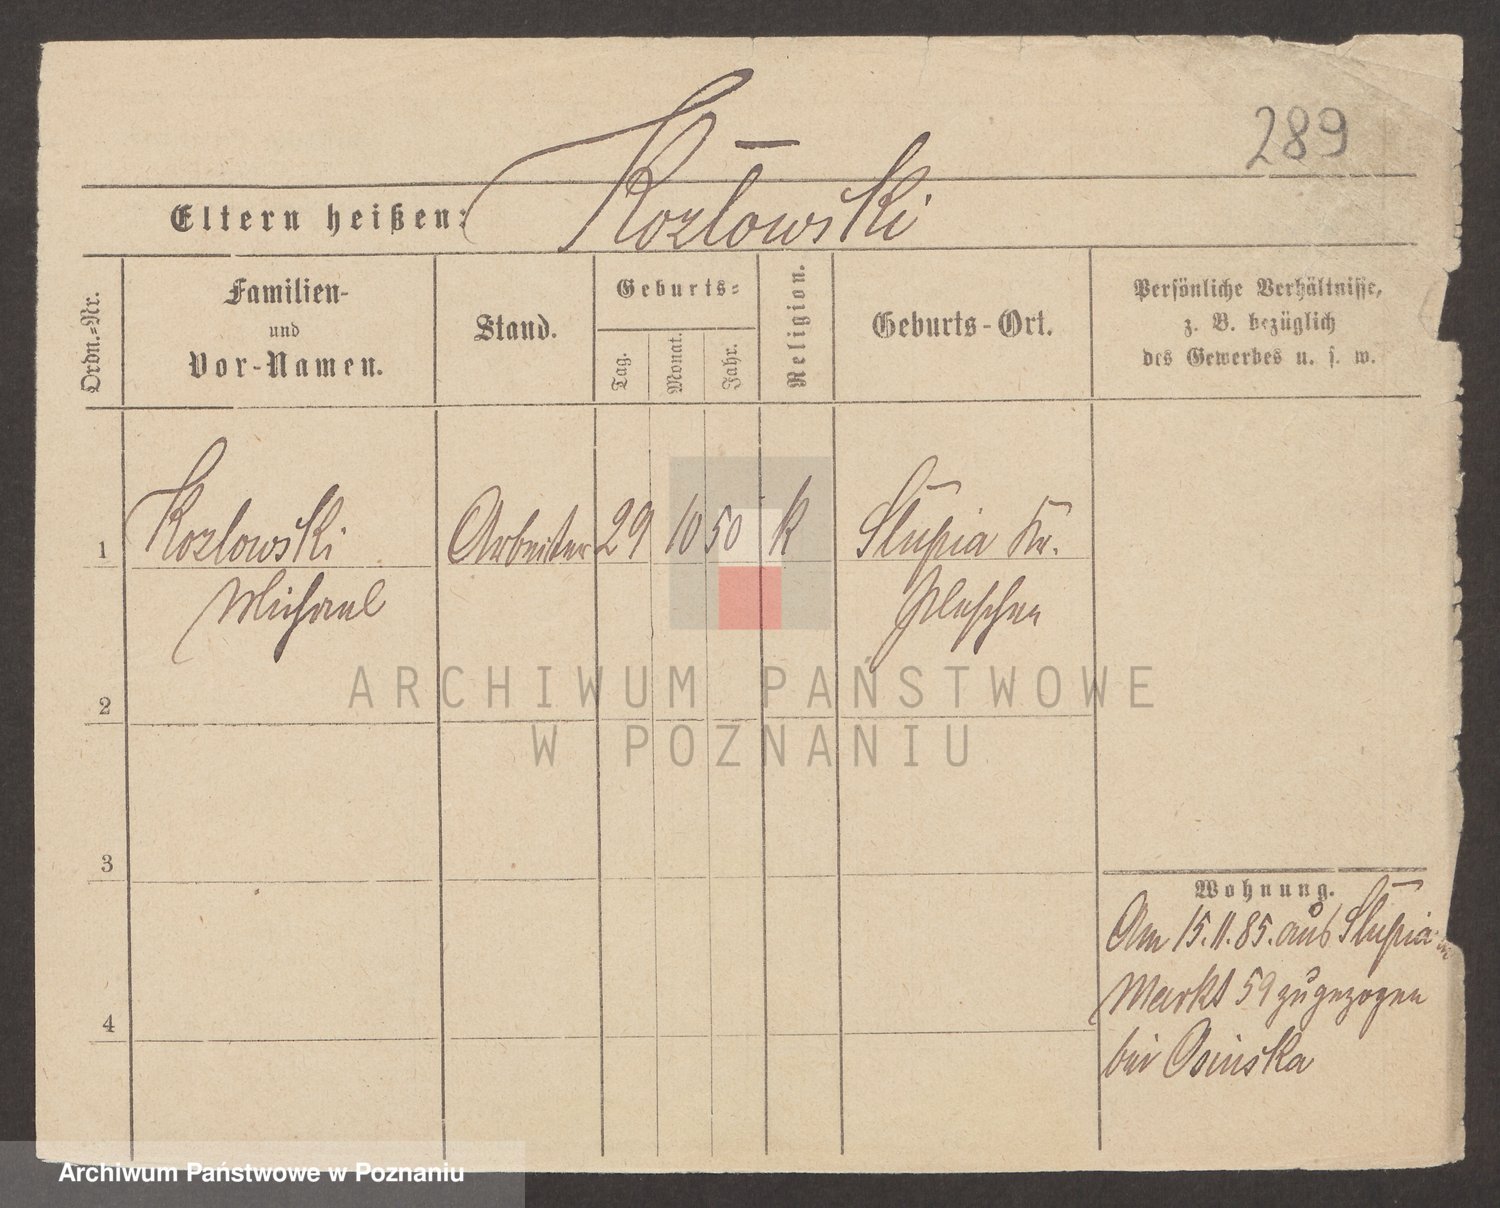 289
Kozlowski
Eltern heißen:
Ordn.=Nr.
Familien-
und
Vor-Namen.
Stand.
Geburts=
Tag.
Monat.
Jahr.
Religion.
Geburts-Ort.
Persönliche Verhältnisse,
z. B. bezüglich
des Gewerbes u. s. w.
1 Kozlowski Arbeiter 29 10 50 k Slupia Kr.
Michael Pleschen
2
3
4
Wohnung.
Am 15.11.85. aus Slupia
Markt 59 zugezogen
bei Osinska
ARCHIWUM PAŃSTWOWE
W POZNANIU
Archiwum Państwowe w Poznaniu